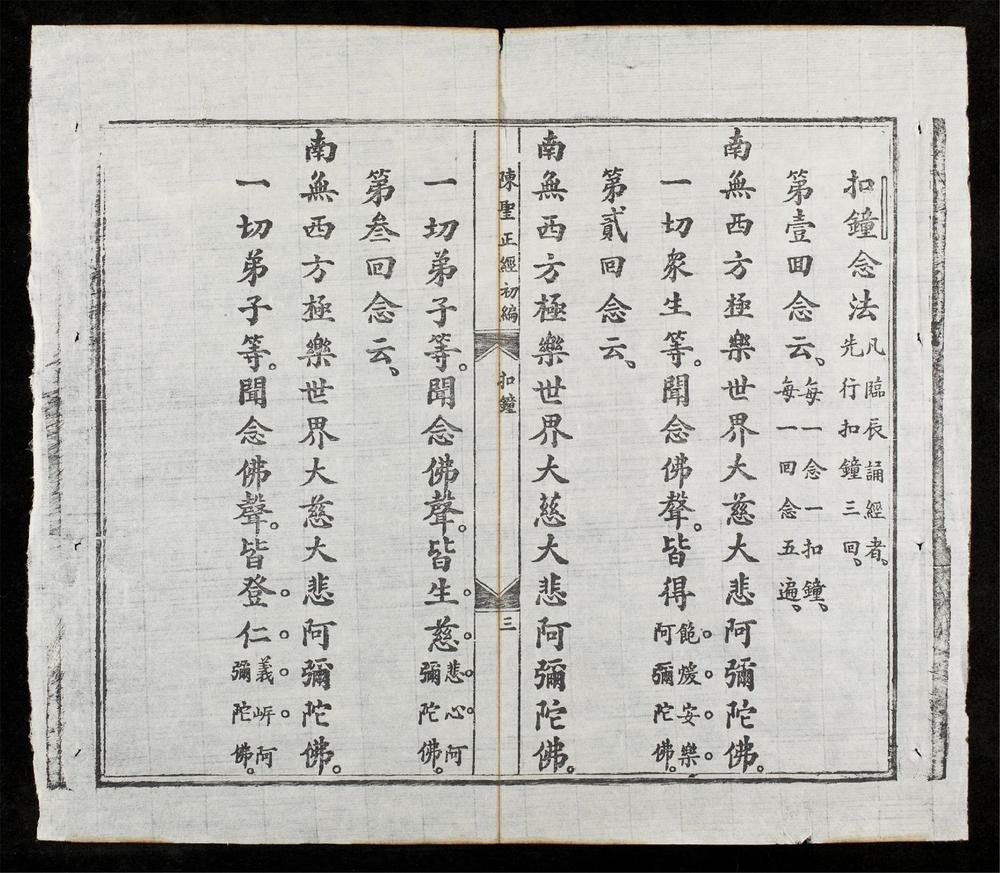 扣鐘念法凡臨辰誦經者。先行扣鐘三回、
第壹回念云、每一念一扣鐘、每一回念五遍、
南無西方極樂世界大慈大悲阿彌陀佛。
一切衆生等。聞念佛聲。皆得飽煖安樂。阿彌陀佛。
第貳回念云、
南無西方極樂世界大慈大悲阿彌陀佛。
一切弟子等。聞念佛聲。皆生慈悲心。阿彌陀佛。
陳聖正經初編 扣鐘 三
第叁回念云、
南無西方極樂世界大慈大悲阿彌陀佛。
一切弟子等。聞念佛聲。皆登仁義岍。阿彌陀佛。